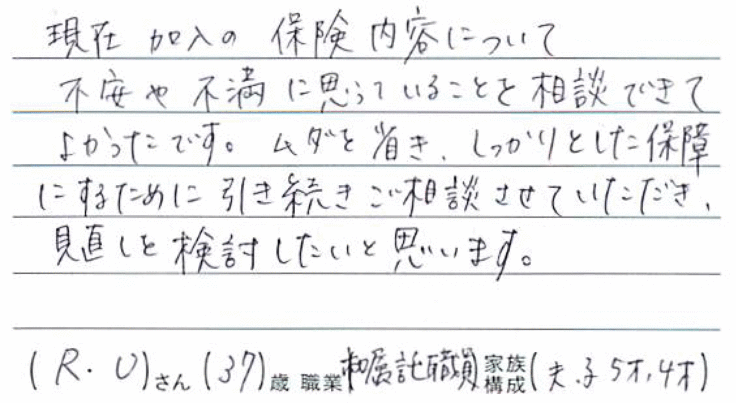 現在 加入の 保険 内容について
不安や不満に思っていることを相談できて
よかったです。ムダを省き、しっかりとした保障
にするために引き続きご相談させていただき、
見直しを検討したいと思います。
(R.U)さん(37)歳 職業 嘱託職員 家族構成(夫.子5才,4才)